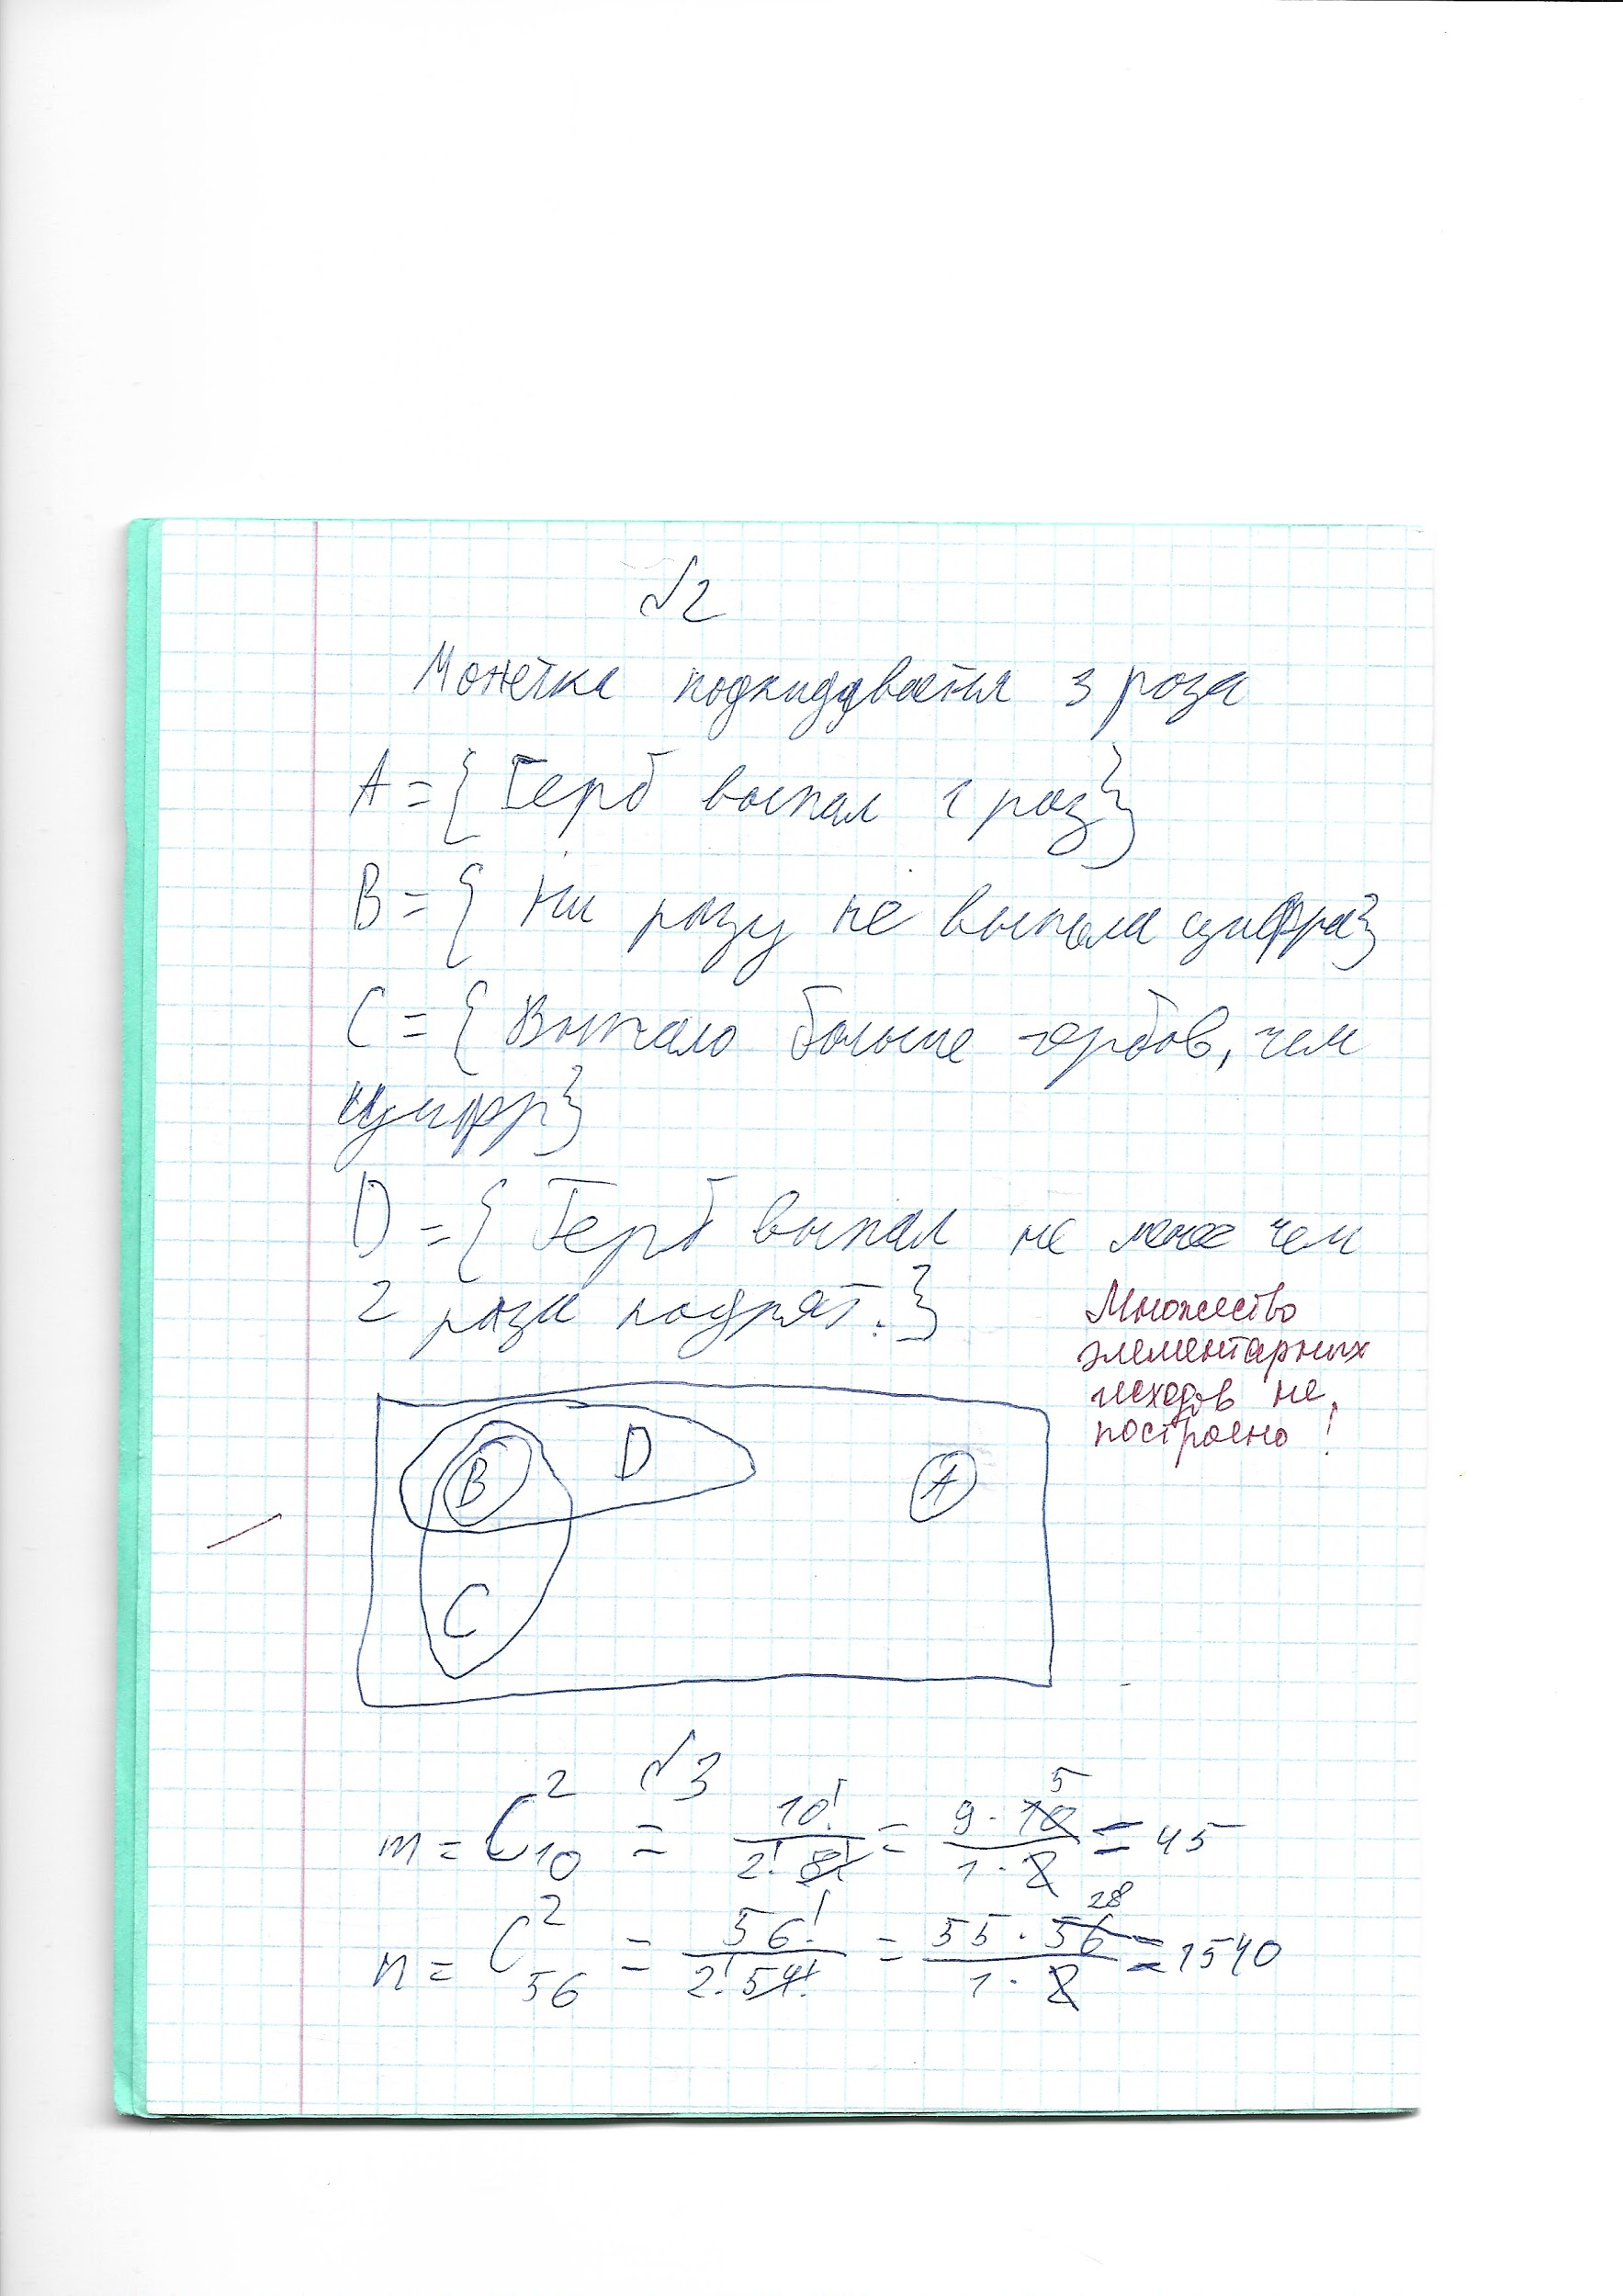 №2
Монетка подкидывается 3 раза
A = { Герб выпал 1 раз}
B = { Ни разу не выпала цифра}
C = { Выпало больше гербов, чем
цифр}
D = { Герб выпал не менее чем
2 раза подрят.}
Множество
элементарных
исходов не
построено!
B D A
C
№3
m = C₁₀² = 10!/(2! 8!) = (9 · 10)/(1 · 2) = 45
5
n = C₅₆² = 56!/(2! 54!) = (55 · 56)/(1 · 2) = 1540
28